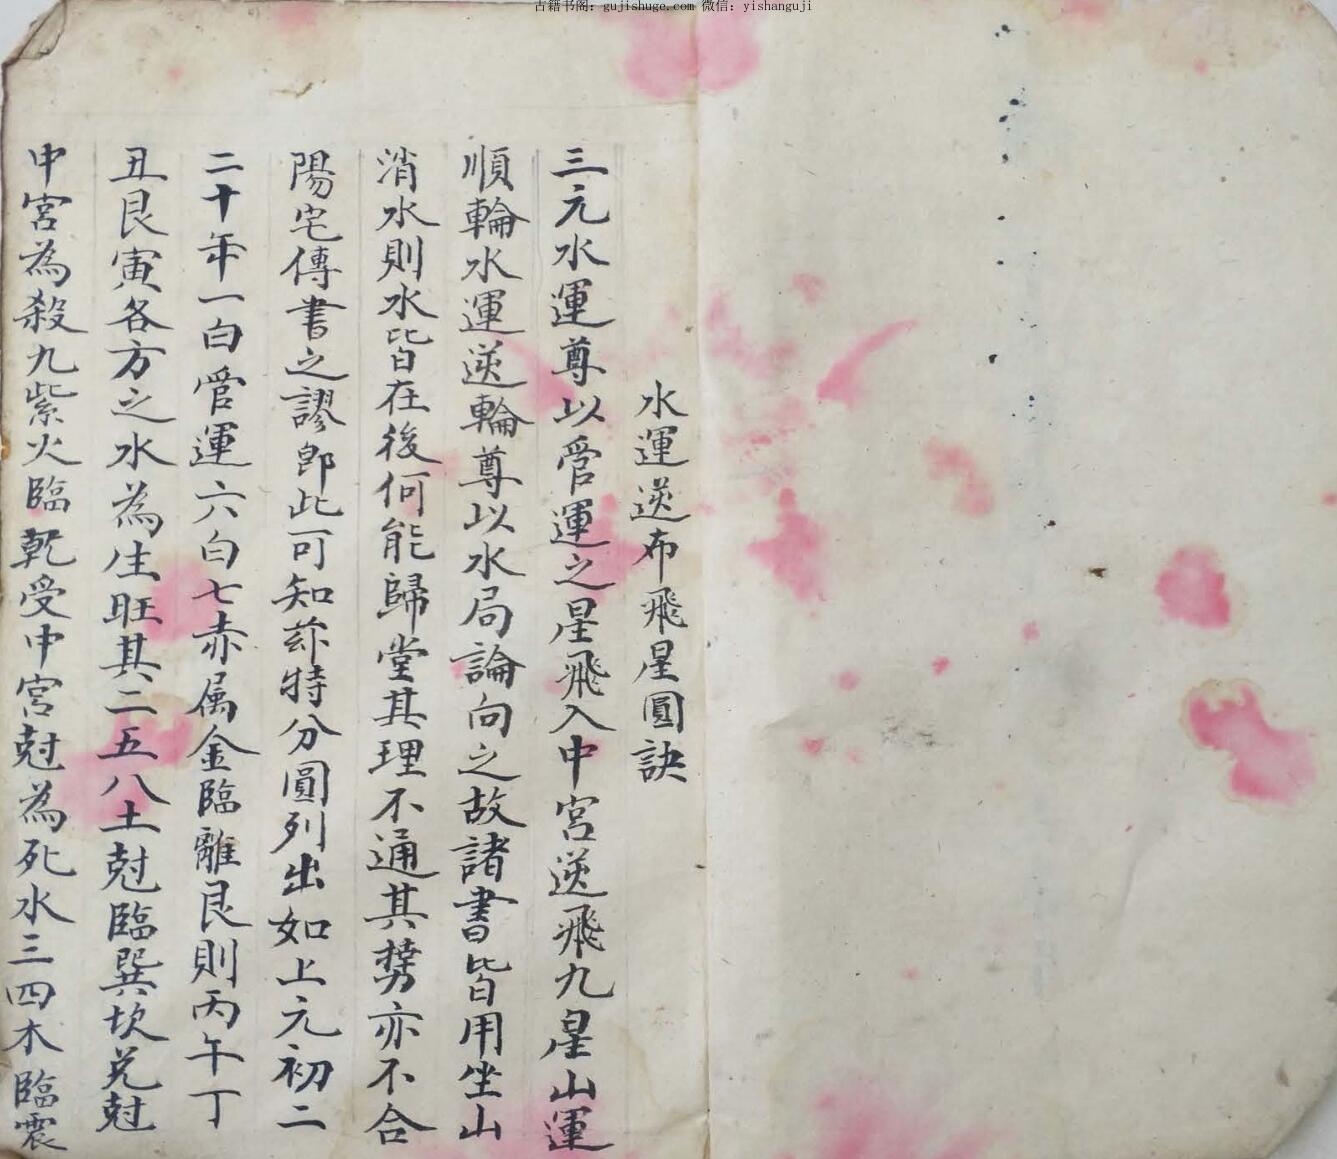 古籍书阁：gujishuge.com 微信：yishanguji
水運逆布飛星圓訣
三元水運尊以管運之星飛入中宮逆飛九星山運
順輪水運逆輪尊以水局論向之故諸書皆用坐山
消水則水皆在後何能歸堂其理不通其勢亦不合
陽宅傳書之謬即此可知茲特分圓列出如上元初二
二十年一白管運六白七赤属金臨離艮則丙午丁
丑艮寅各方之水為生旺其二五八土尅臨巽坎兑尅
中宮為殺九紫火臨乾受中宮尅為死水三四木臨震